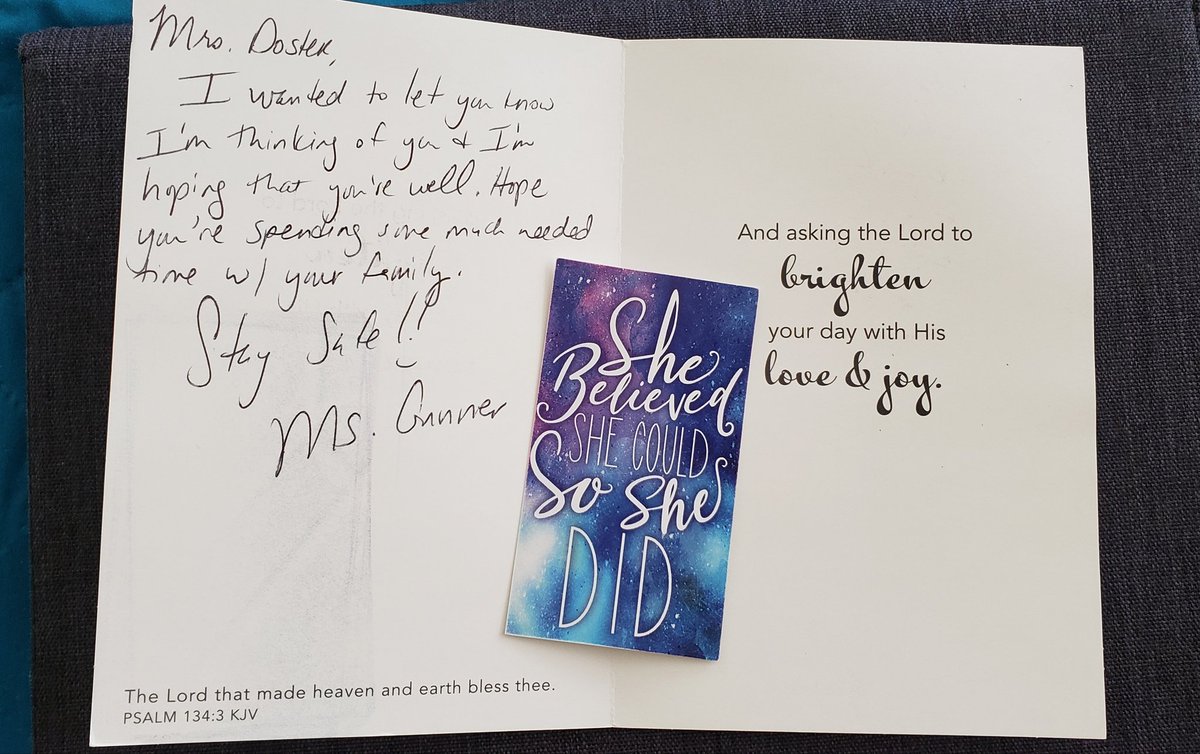 Mrs. Doster,
I wanted to let you know
I'm thinking of you & I'm
hoping that you're well. Hope
you're spending some much needed
time w/ your family.
Stay Safe!!
Ms. Gunner
The Lord that made heaven and earth bless thee.
PSALM 134:3 KJV
She
Believed
SHE COULD
So She
DID
And asking the Lord to
brighten
your day with His
love & joy.